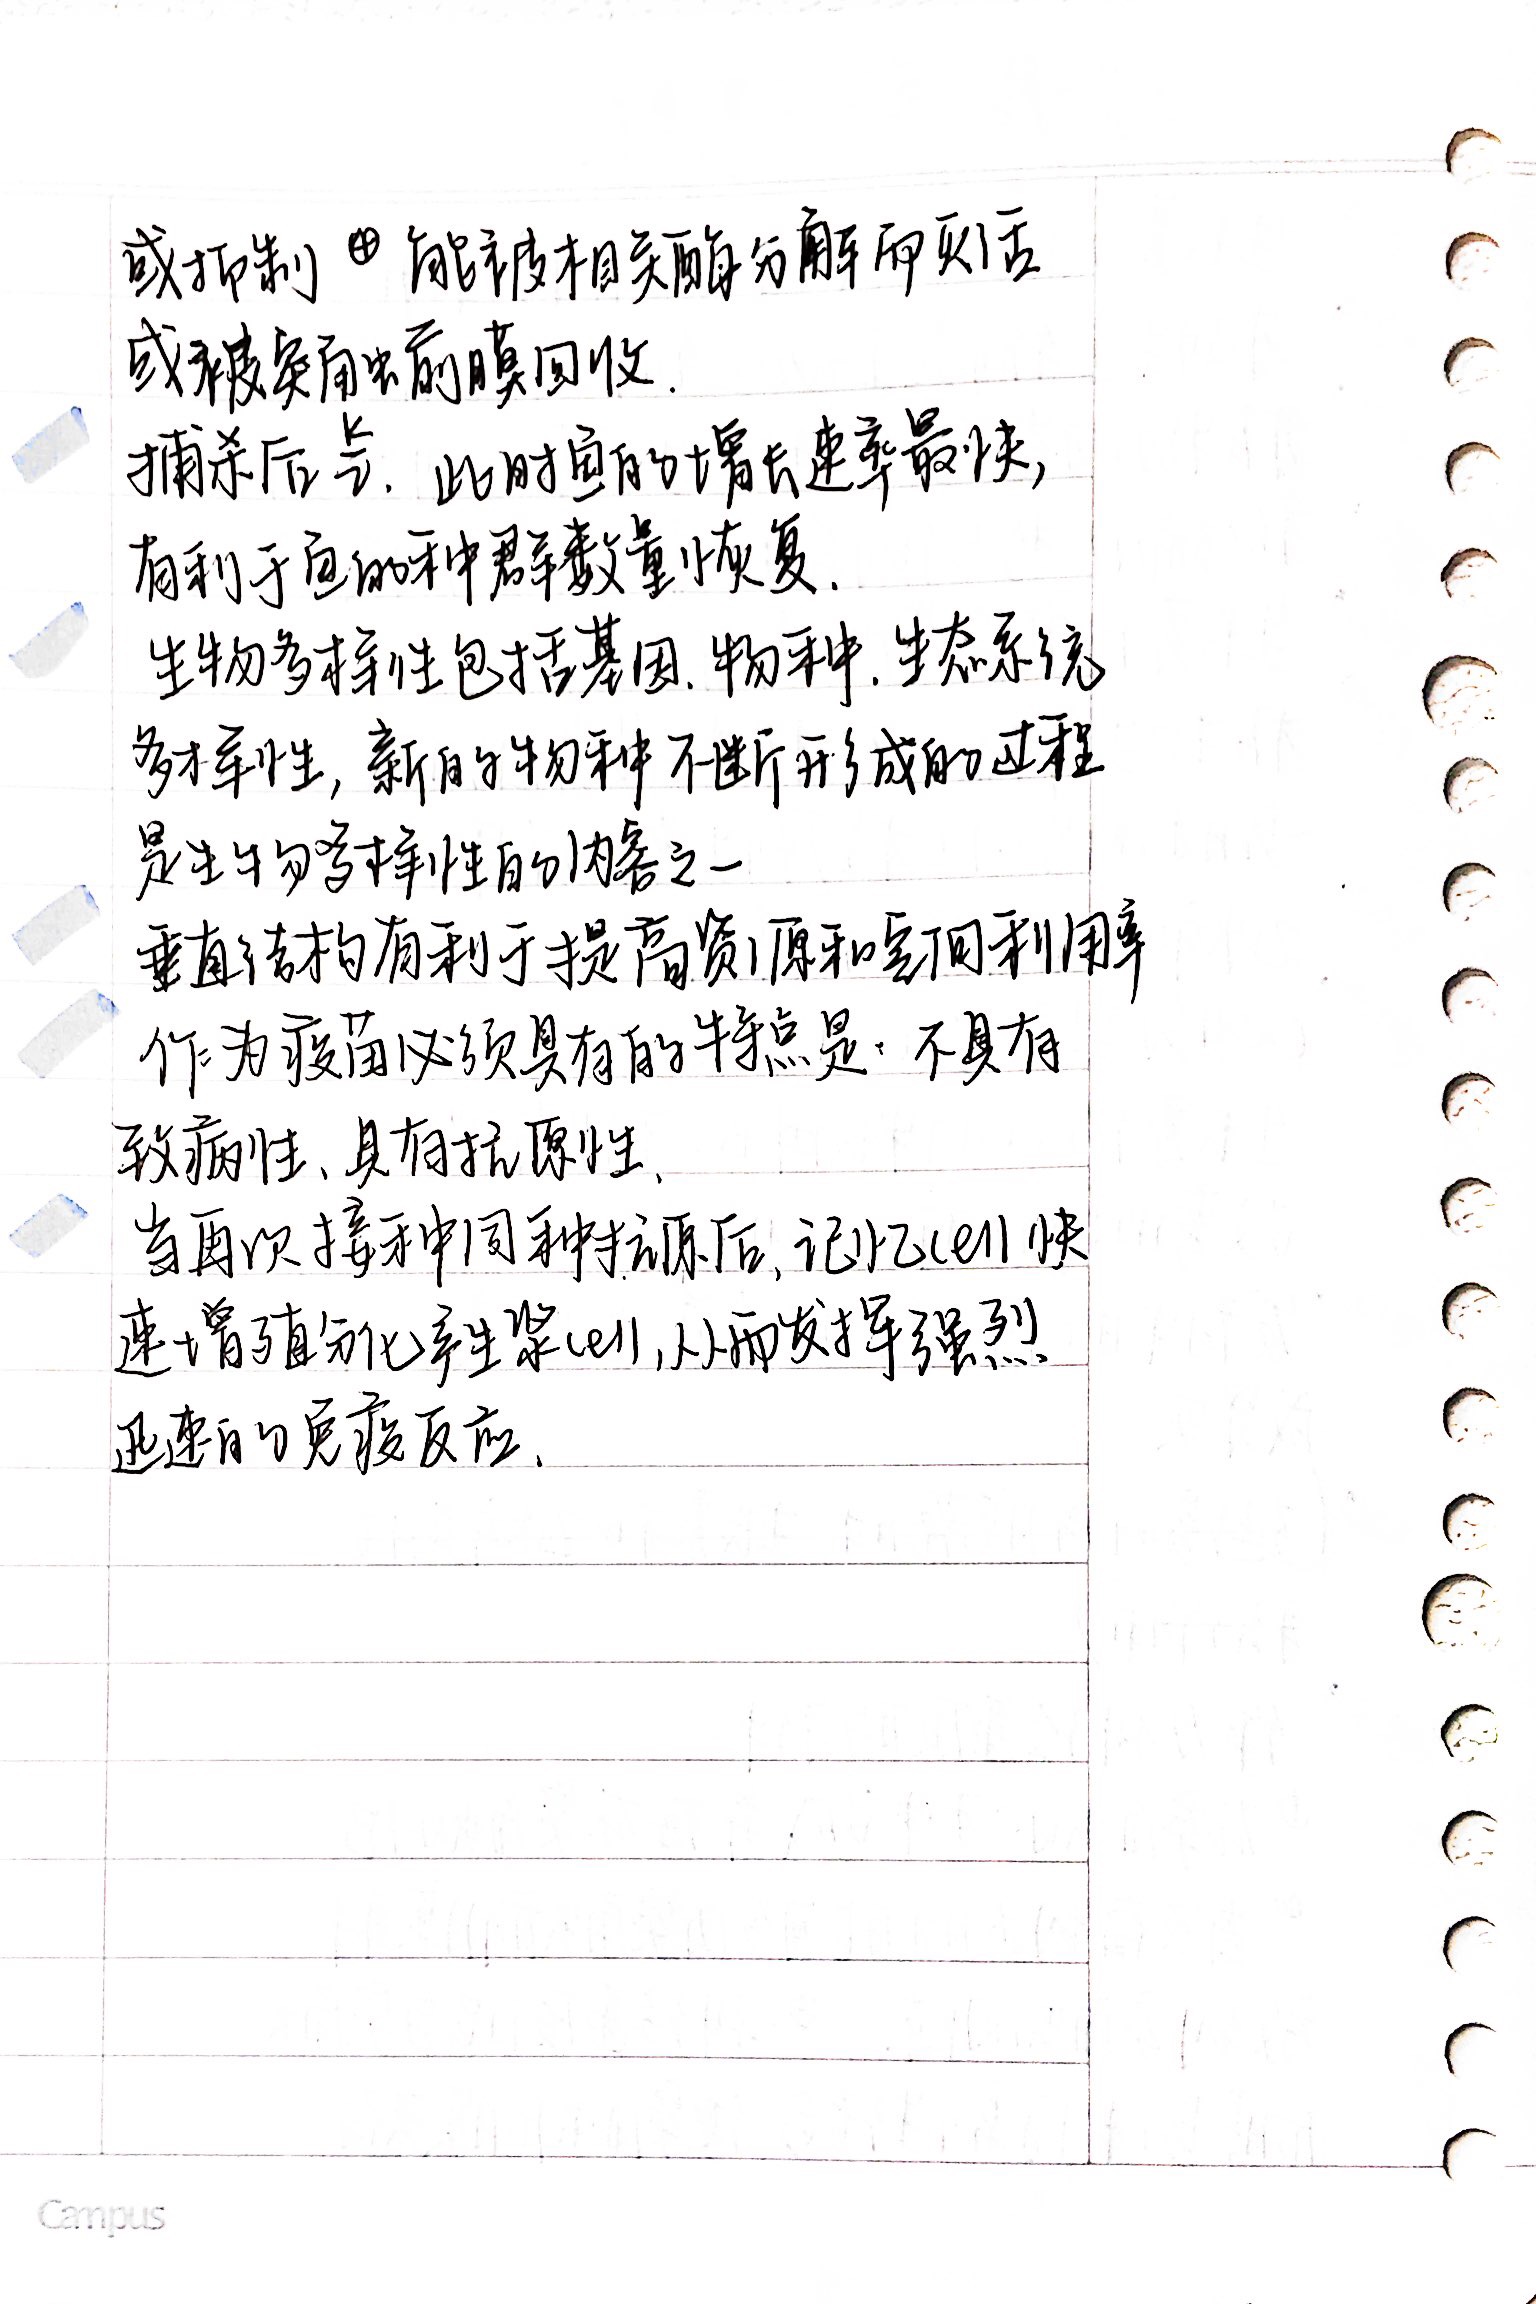 或抑制 ⊕ 能被相关酶分解而灭活
或被突触前膜回收.
捕杀后K/2. 此时鱼的增长速率最快,
有利于鱼的种群数量恢复.
生物多样性包括基因、物种、生态系统
多样性, 新的物种不断形成的过程
是生物多样性的内容之一
垂直结构有利于提高资源和空间利用率
作为疫苗必须具有的特点是: 不具有
致病性、具有抗原性、
当再次接种同种抗原后, 记忆cell快
速增殖分化产生浆cell, 从而发挥强烈
迅速的免疫反应.
Campus